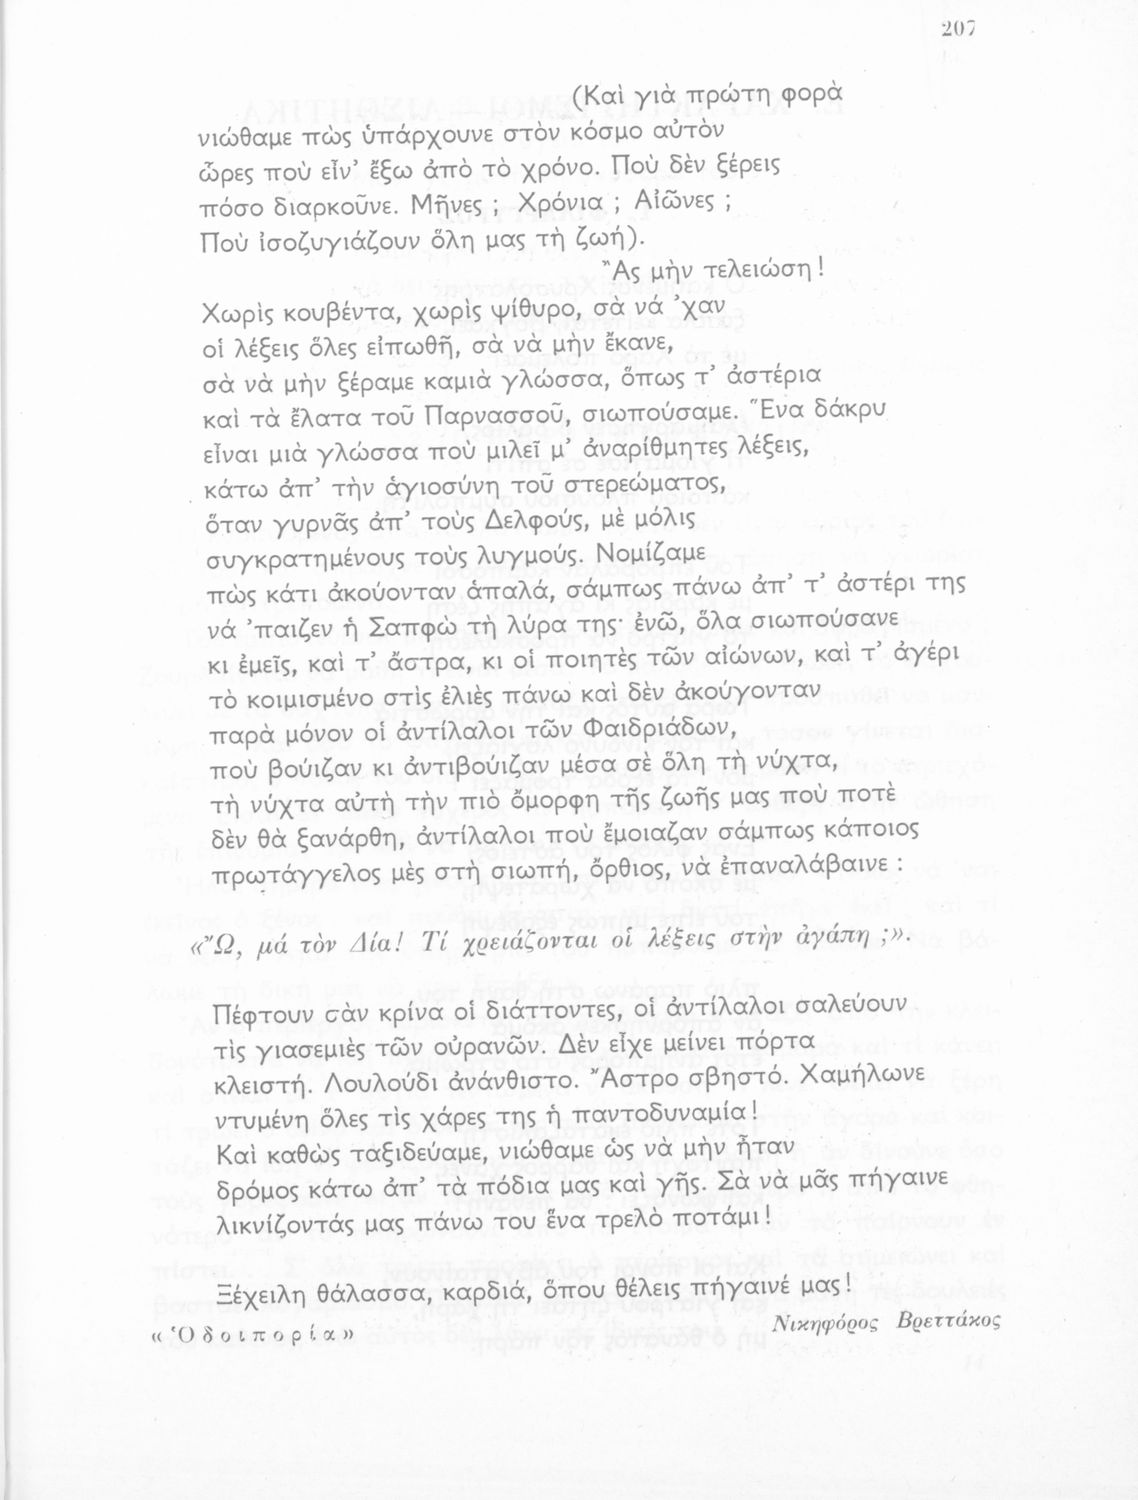 207
(Καὶ γιὰ πρώτη φορὰ
νιώθαμε πὼς ὑπάρχουνε στὸν κόσμο αὐτὸν
ὧρες ποὺ εἶν' ἔξω ἀπὸ τὸ χρόνο. Ποὺ δὲν ξέρεις
πόσο διαρκοῦνε. Μῆνες ; Χρόνια ; Αἰῶνες ;
Ποὺ ἰσοζυγιάζουν ὅλη μας τὴ ζωή).
Ἂς μὴν τελειώση!
Χωρὶς κουβέντα, χωρὶς ψίθυρο, σὰ νά 'χαν
οἱ λέξεις ὅλες εἰπωθῆ, σὰ νὰ μὴν ἔκανε,
σὰ νὰ μὴν ξέραμε καμιὰ γλώσσα, ὅπως τ' ἀστέρια
καὶ τὰ ἔλατα τοῦ Παρνασσοῦ, σιωπούσαμε. Ἕνα δάκρυ
εἶναι μιὰ γλώσσα ποὺ μιλεῖ μ' ἀναρίθμητες λέξεις,
κάτω ἀπ' τὴν ἁγιοσύνη τοῦ στερεώματος,
ὅταν γυρνᾶς ἀπ' τοὺς Δελφούς, μὲ μόλις
συγκρατημένους τοὺς λυγμούς. Νομίζαμε
πὼς κάτι ἀκούονταν ἁπαλά, σάμπως πάνω ἀπ' τ' ἀστέρι της
νά 'παιζεν ἡ Σαπφὼ τὴ λύρα της· ἐνῶ, ὅλα σιωπούσανε
κι ἐμεῖς, καὶ τ' ἄστρα, κι οἱ ποιητὲς τῶν αἰώνων, καὶ τ' ἀγέρι
τὸ κοιμισμένο στὶς ἐλιὲς πάνω καὶ δὲν ἀκούγονταν
παρὰ μόνον οἱ ἀντίλαλοι τῶν Φαιδριάδων,
ποὺ βούιζαν κι ἀντιβούιζαν μέσα σὲ ὅλη τὴ νύχτα,
τὴ νύχτα αὐτὴ τὴν πιὸ ὄμορφη τῆς ζωῆς μας ποὺ ποτὲ
δὲν θὰ ξανάρθη, ἀντίλαλοι ποὺ ἔμοιαζαν σάμπως κάποιος
πρωτάγγελος μὲς στὴ σιωπή, ὄρθιος, νὰ ἐπαναλάβαινε :
«Ὢ, μά τὸν Δία! Τί χρειάζονται οἱ λέξεις στὴν ἀγάπη ;».
Πέφτουν σὰν κρίνα οἱ διάττοντες, οἱ ἀντίλαλοι σαλεύουν
τὶς γιασεμιὲς τῶν οὐρανῶν. Δὲν εἶχε μείνει πόρτα
κλειστή. Λουλούδι ἀνάνθιστο. Ἄστρο σβηστό. Χαμήλωνε
ντυμένη ὅλες τὶς χάρες της ἡ παντοδυναμία!
Καὶ καθὼς ταξιδεύαμε, νιώθαμε ὡς νὰ μὴν ἦταν
δρόμος κάτω ἀπ' τὰ πόδια μας καὶ γῆς. Σὰ νὰ μᾶς πήγαινε
λικνίζοντάς μας πάνω του ἕνα τρελὸ ποτάμι!
Ξέχειλη θάλασσα, καρδιά, ὅπου θέλεις πήγαινέ μας!
«Ὁδοιπορία»
Νικηφόρος Βρεττάκος